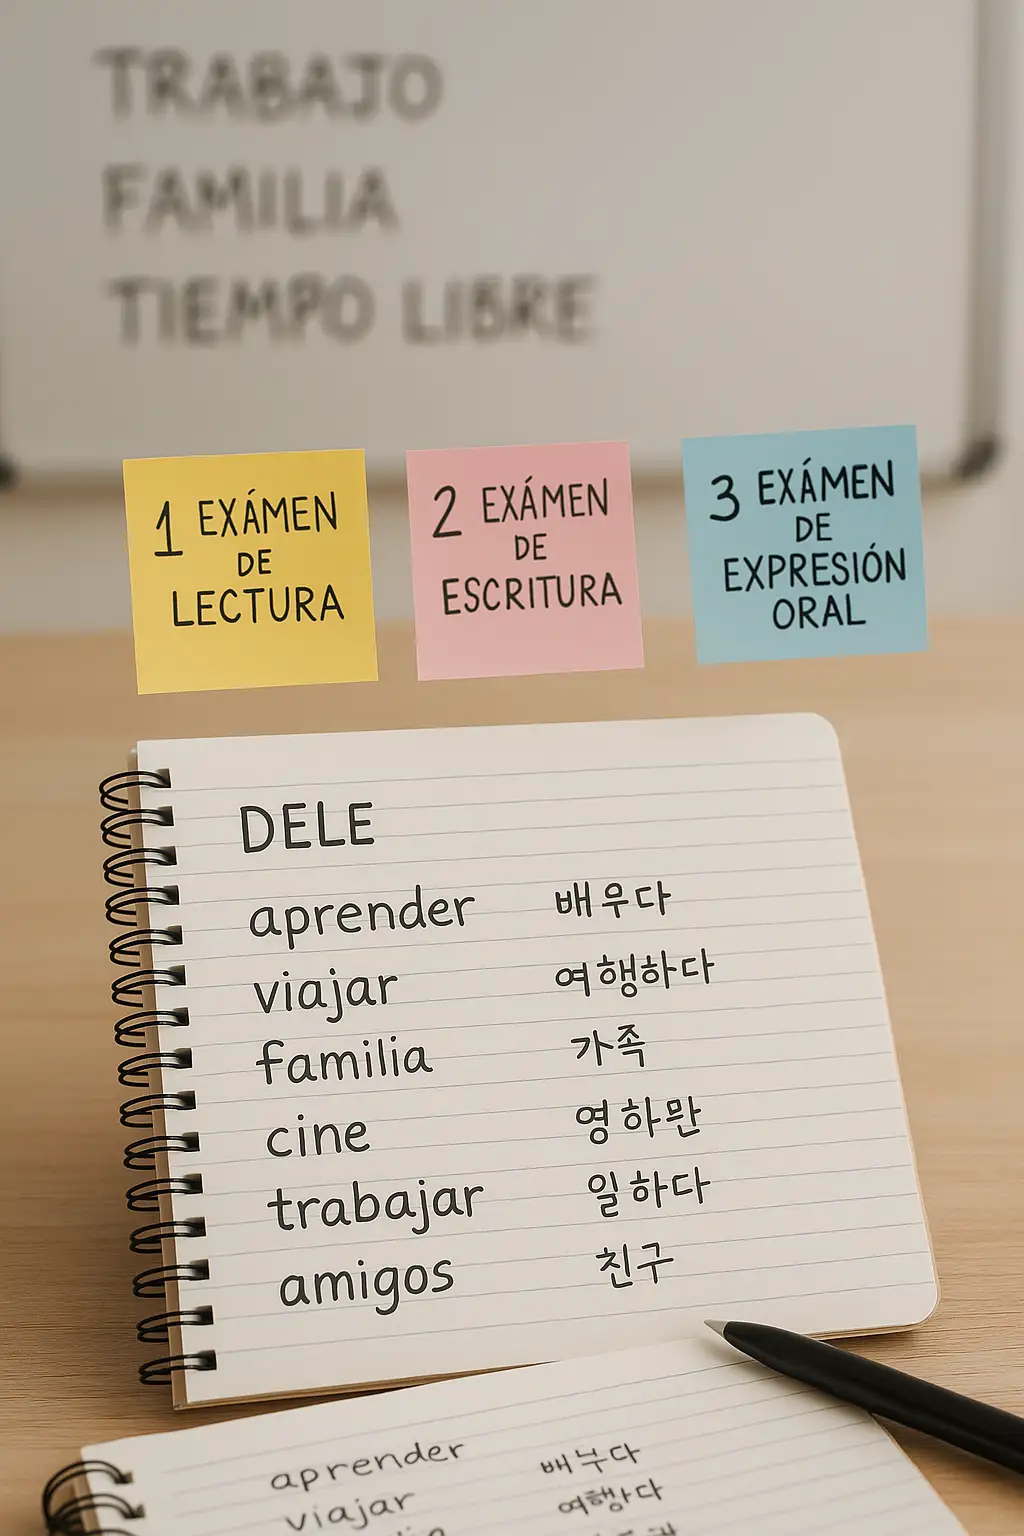 TRABAJO
FAMILIA
TIEMPO LIBRE
1 EXÁMEN
DE
LECTURA
2 EXÁMEN
DE
ESCRITURA
3 EXÁMEN
DE
EXPRESIÓN
ORAL
DELE
aprender 배우다
viajar 여행하다
familia 가족
cine 영하만
trabajar 일하다
amigos 친구
aprender
viajar